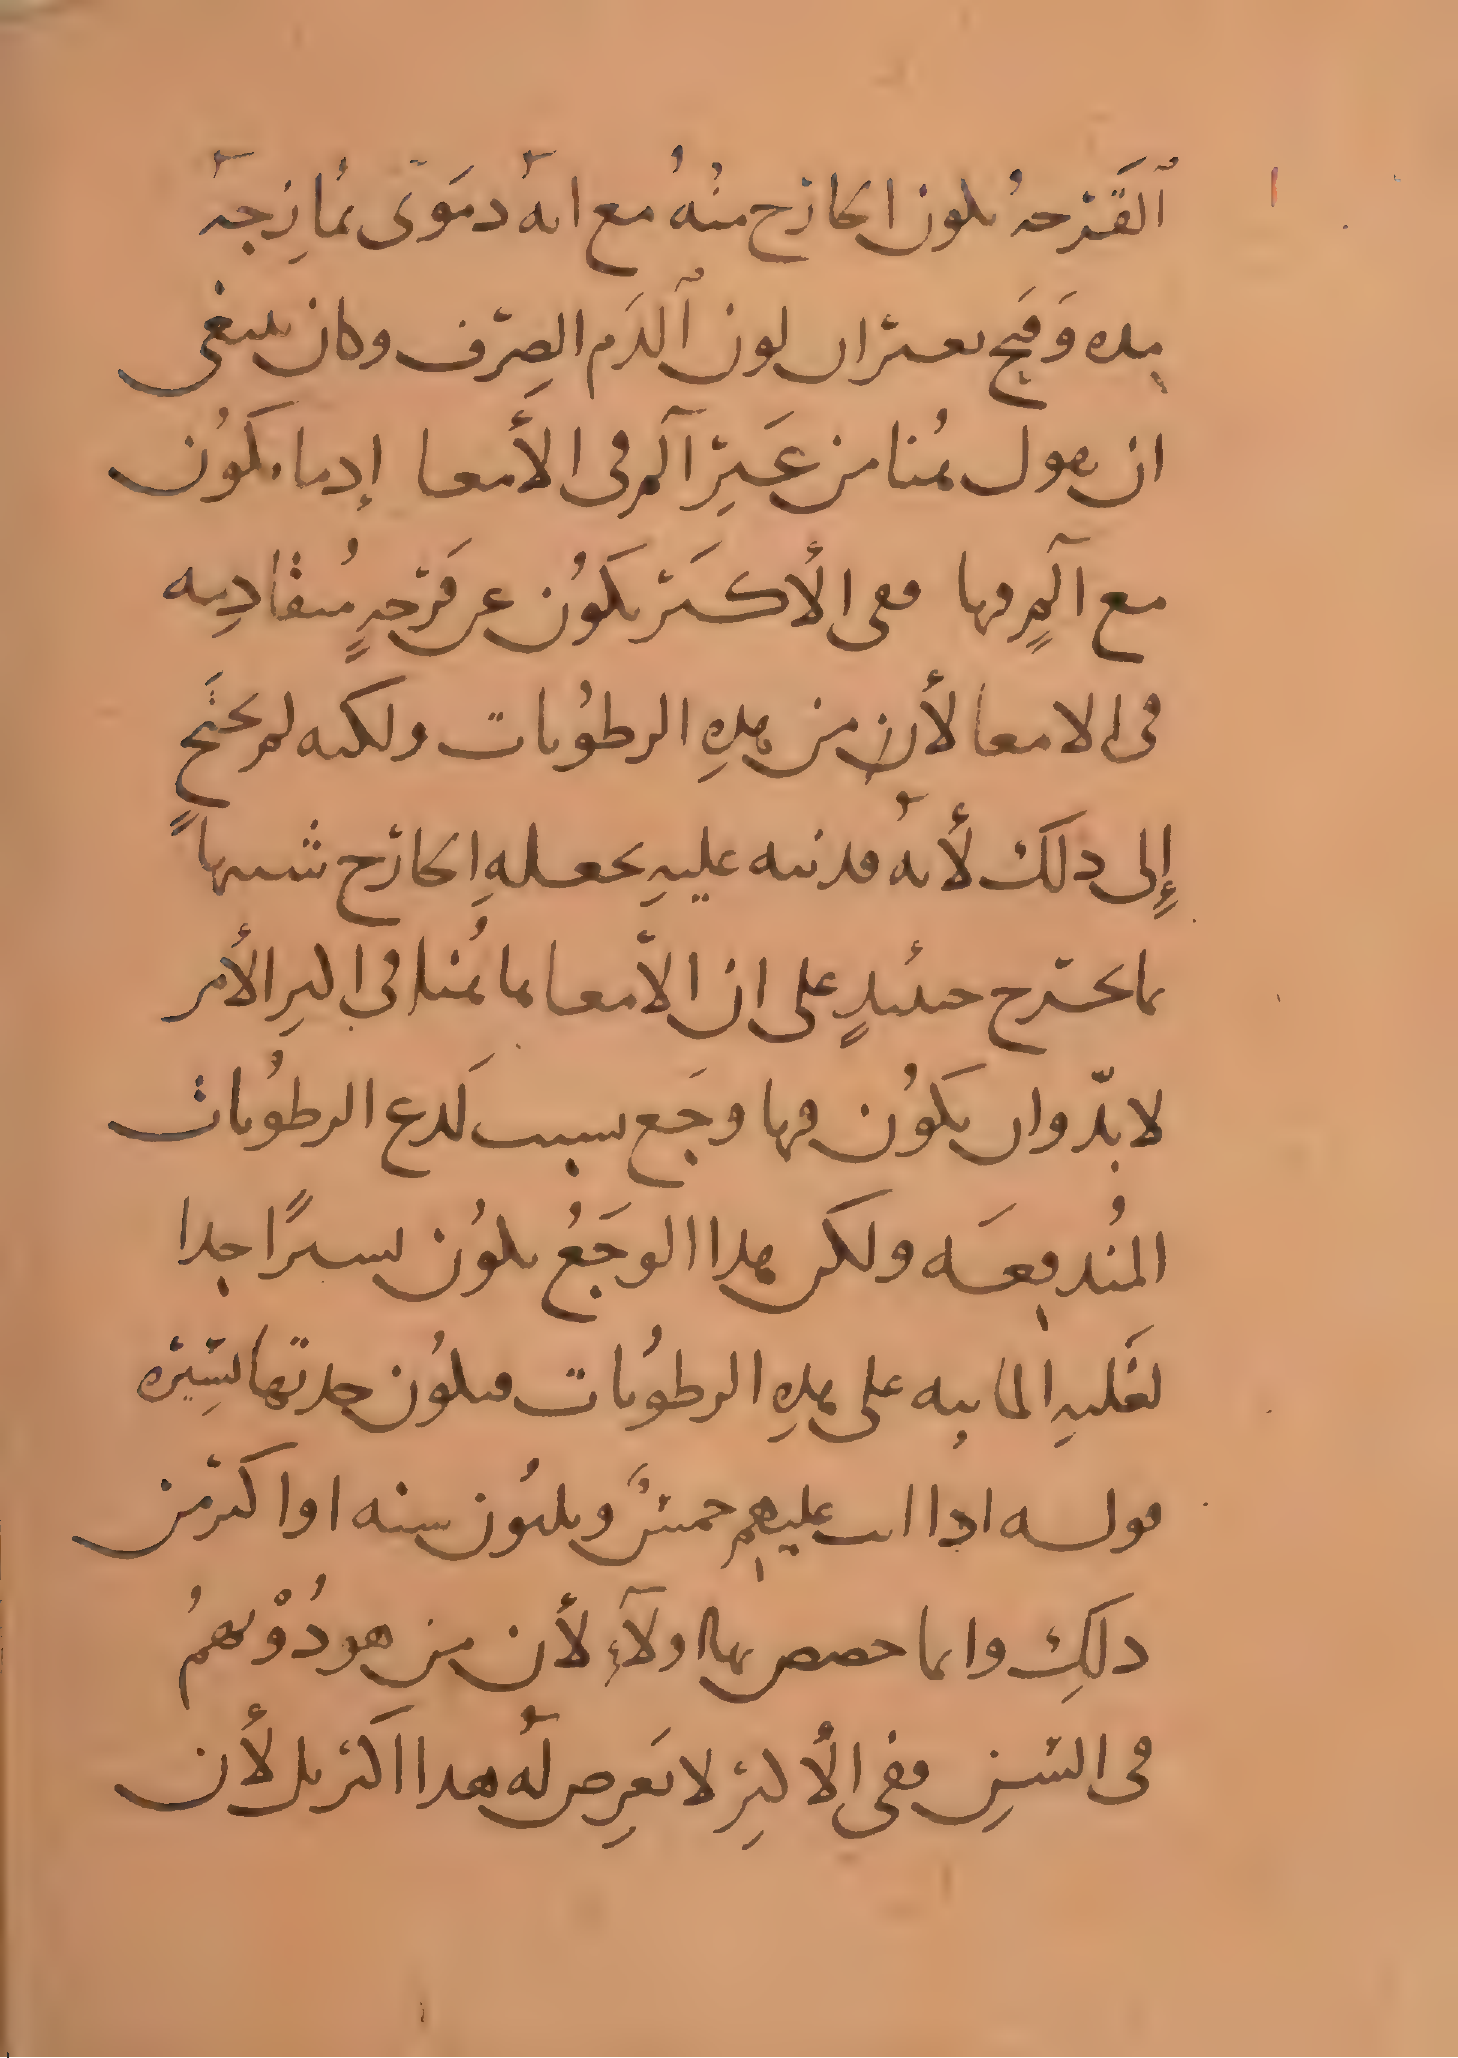 القرحة يكون الخارج منه مع انه دموى يمازجه
مده وقيح يغير ان لون الدم الصرف وكان ينبغى
ان يقول هنا من غير ألم فى الأمعا إذ ما يكون
مع ألمٍ فيها ففى الأكثر يكون عن قرحةٍ متقادمه
فى الامعا لأن من هذهِ الرطوبات ولكنه لم يحتج
إلى ذلك لأنه قد نبه عليهِ بجعلهِ الخارج شبيهاً
بما يخرج حينئذٍ على ان الأمعا مما هنا فى اكثر الأمر
لا بدّ وان يكون فيها وجع بسبب لذع الرطوبات
المندفعه ولكن هذا الوجع يكون يسيرًا جدا
لغلبهِ المائيه على هذهِ الرطوبات فيكون حدتها يسيره
قوله اذا اتت عليهم خمسٌ وثلثون سنه او اكثر من
ذلك وانما خصص بهاولآءِ لأن من هو دونهم
فى السن ففى الأكثر لا يعرض له هذا اكثر بل لأن